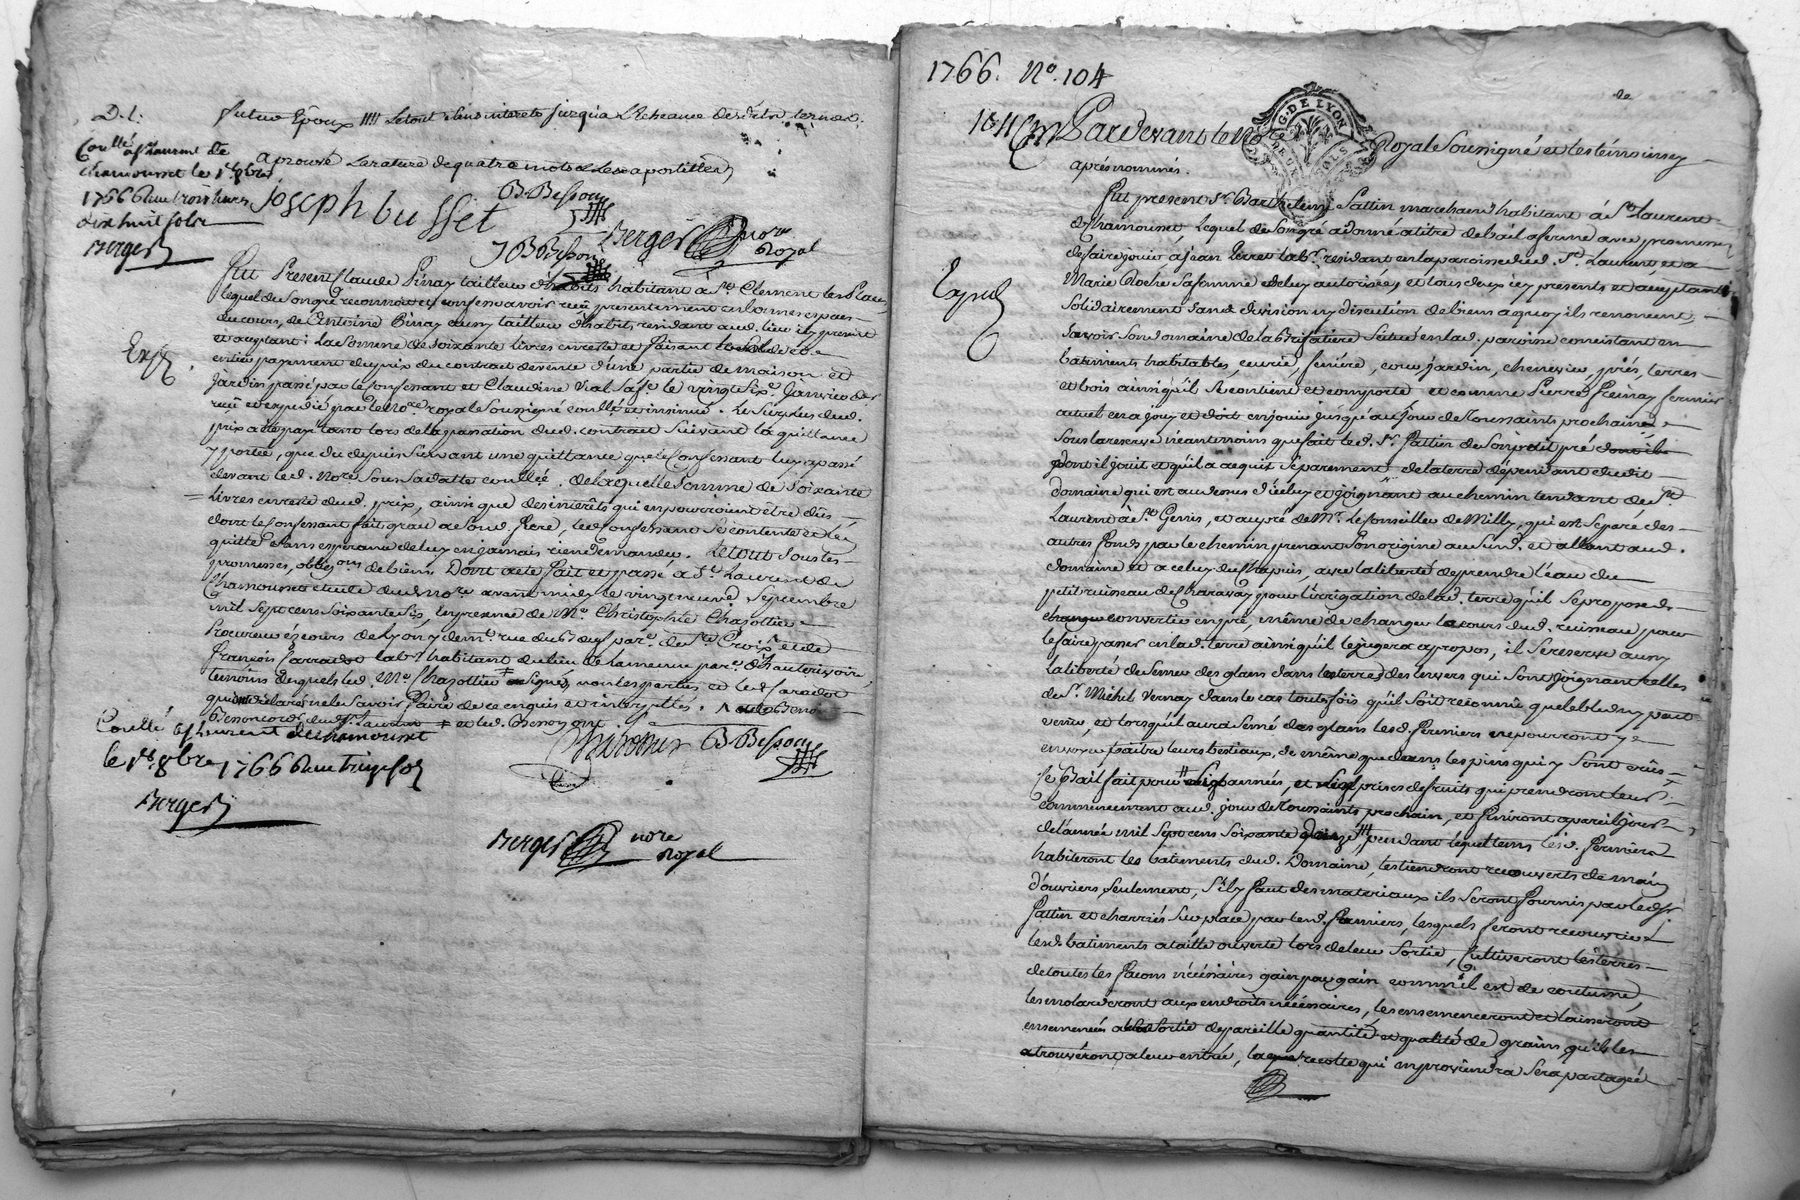 D. l.
futur Epoux //// Le tout sans interets jusqu'a L'Echeance desdits termes.
aprouvé La rature de quatre mots & Les apostilles
Coullé a St Laurent de
chamousset le 1er 8bre
1766 Reçu trois livres
dix huit sols
Berger
joseph busset
B. Besson
J B Besson
Berger nore Royal
Fut Present Claude Pinay tailleur d'habits habitant a St Clement les Places
lequel de Son gré reconnoit et confesse avoir reçû présentement en bonnes espèces
du cours, de Antoine Pinay aussy tailleur d'habits résidant aud. lieu icy présent
et acceptant: La Somme de soixante livres en reste et faisant le solde et
entier payement du prix du contract de vente d'une partie de maison et
Jardin passé par le Confessant et Claudine Vial Sa fe. le vingt six Janvier der
reçû et expedié par le Nore. royal Soussigné coullé et insinué. Le Surplus dud.
prix a été payé tant lors de la passation dud. contract Suivant la quittance
y portée, que du depuis Suivant une quittance que le Confessant luy a passé
devant led. Nore. Sous sa datte coullée. de laquelle Somme de Soixante
Livres en reste dud. prix, ainsi que des interêts qui en pourroient être dûs
dont le Confessant fait grace a Sond. frere, led. Confessant Se contente et l'en
quitte Sans esperance de luy en jamais rien demander. Le tout Sous les
promesses, obligons. de biens. Dont acte fait et passé a St. Laurent de
Chamousset etude dud. Nore. avant midy le vingt neuf Septembre
mil Sept cens Soixante Six, En presence de Me. Christophle Chazottier
Procureur ez cours de Lyon y demt. rue du Boeuf par. de Ste. Croix, et de
François Carradot labr. habitant du lieu de Lameure par. d'hauterivoire
temoins desquels led. Me. Chazottier a signé, non les parties et led. Caradot
qui ont déclaré ne le Savoir faire de ce enquis et interpellés.
Expé.
Coullé a St Laurent de chamousset
le 1er 8bre 1766 Reçu treize sols
Berger
B. Besson
Berger nore Royal
1766. No. 104
G. DE LYON
Pardevant le Nore Royal Soussigné et les témoins icy
après nommés.
Fut present Sr. Barthelemi Pattin marchand habitant à St. Laurent
de Chamousset, Lequel de Son gré a donné a titre de bail a ferme avec promesse
de faire jouir a Jean Perret labr. résidant en la paroisse dud. St. Laurent, et a
Marie Roche Sa femme de luy autorisée, et tous deux icy presents et acceptants
Solidairement Sans division ny discution de biens a quoy ils renoncent,
Expédié
Savoir Son domaine de la Brigatiere Scitué en lad. paroisse consistant en
batiments habitables, ecurie, feniére, cour, jardin, cheneviere, prés, terres
et bois ainsi qu'il Se contient et comporte et comme Pierre Preinay fermier
actuel en a joüy et doit en jouir jusqu'au jour de Toussaints prochaine
Sous la reserve néantmoins que fait led. Sr. Pattin de Son petit pré dont il
dont il jouit et qu'il a acquit Séparement, de la terre dépendant dudit
domaine qui est au dessus d'icelui et joignant au chemin tendant de St.
Laurent à Ste. Genis, et au pré de Mr. le Conseiller de Milly, qui est Séparé des
autres fonds par le chemin prenant Son origine au Sud. et allant aud.
domaine et a celui du Chapuis, avec la liberté de prendre l'eau du
petit ruisseau de Charavay pour l'irrigation de lad. terre qu'il Se propose de
changer convertir en pré, même de changer le cours dud. ruisseau pour
le faire passer en lad. terre ainsi qu'il le jugera a propos, il Se reserve aussy
la liberté de Semer des glans dans les terres des envers qui Sont joignant celles
de Sr. Michel Vernay dans le cas toutefois qu'il Soit reconnu que le bled n'y peut
venir, et lorsqu'il aura Semé des glans les d. fermiers ne pourront y
envoyer paître leurs bestiaux, de même que dans les pins qui y Sont crûs
Ce Bail fait pour années, et prises de fruits qui prendront leur
commencement aud. jour de Toussaints prochain, et finiront a pareil jour
de l'année mil Sept cens Soixante pendant lequel tems lesd. fermiers
habiteront les batiments dud. Domaine, les tiendront recouverts de main
d'ouvriers seulement, S'il y faut des materiaux ils Seront fournis par led. Sr
Pattin et charriés Sur place par lesd. fermiers, lesquels feront recouvrir
lesd. batiments a taille ouverte lors de leur Sortie, Cultiveront les terres
de toutes les façons nécéssaires gain par gain comm'il est de coutume,
les molarderont aux endroits nécéssaires, les ensemenceront et laisseront
ensemencés a leur Sortie de pareille quantité et qualité de grains qu'ils les
a trouveront a leur entrée, la recolte qui en proviendra Sera partagée